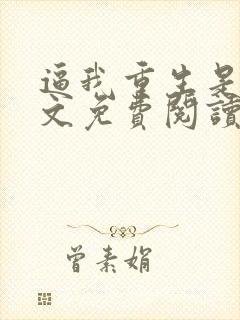 逼我重生是
文免費閱讀
曾素娟